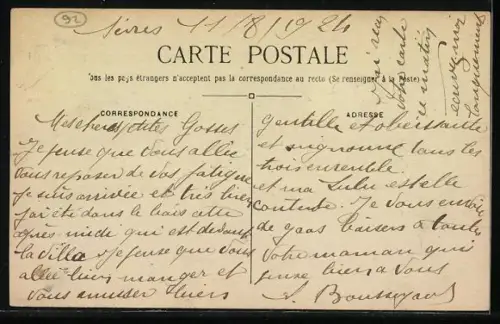 92
Sèvres 11/8/1924
CARTE POSTALE
Tous les pays étrangers n'acceptent pas la correspondance au recto (Se renseigner à la poste)
CORRESPONDANCE
Mes cheres ptites Gosses
Je pense que vous allee
vous reposer de vos fatigue
je suis arrivée et très bien
j'ai été dans le bois cette
après midi qui est devant
la villa je pense que vous
allee bien manger et
vous amuser bien
ADRESSE
gentille et obeissante
et mignonne tous les
trois ensemble.
et ma Lulu est elle
contente. Je vous envoie
de gros baisers a toutes
votre maman qui
pense bien a vous
A.
J'ai reçu
votre carte
ce matin
ecrivez moi
longuement